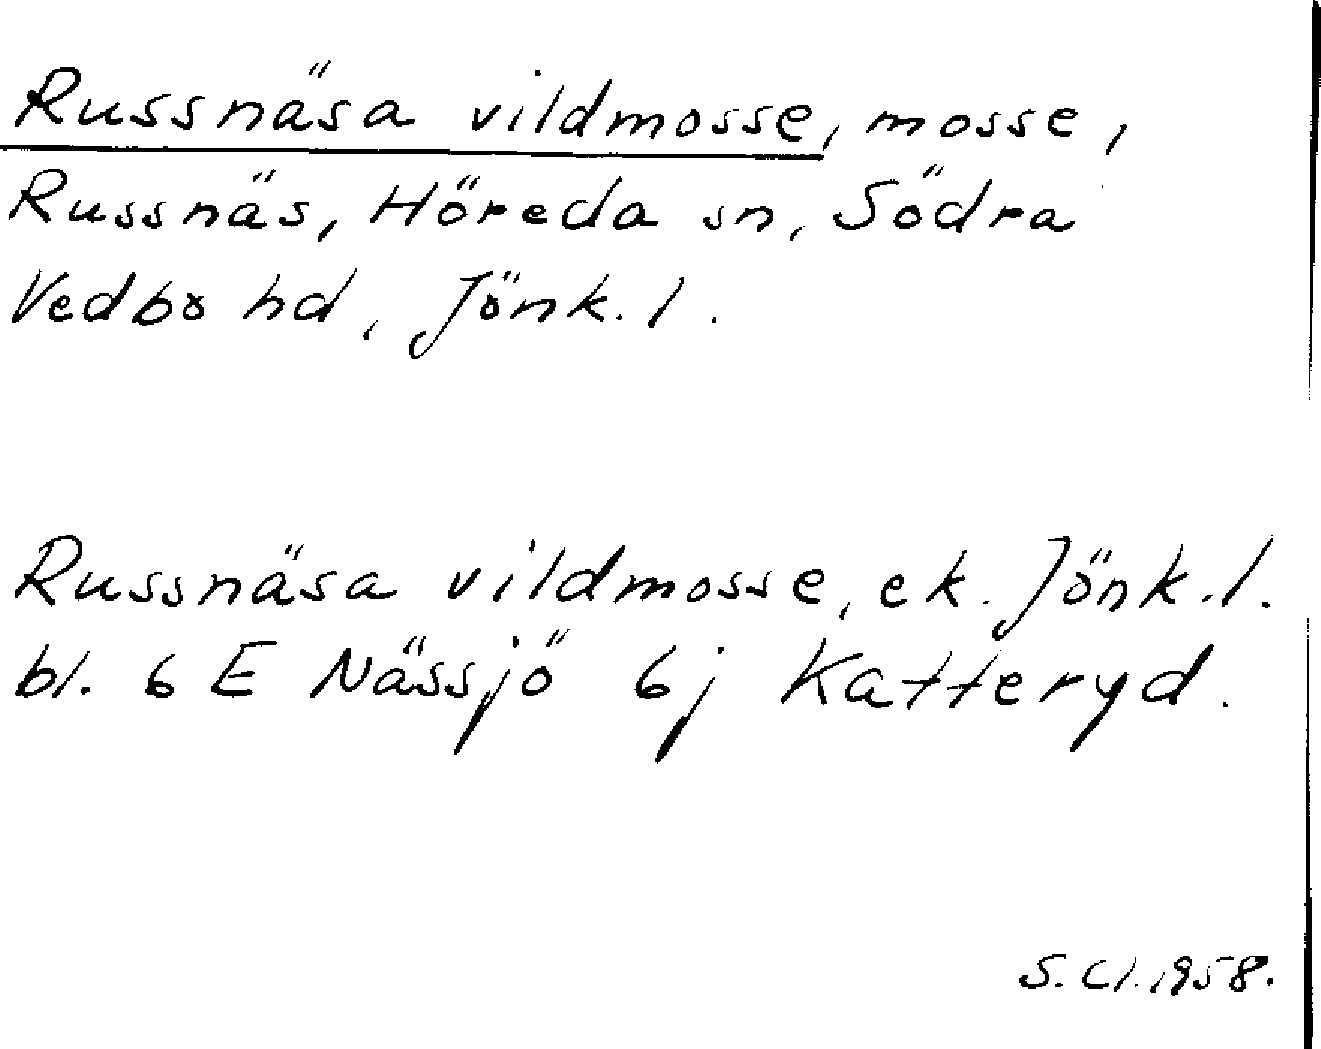 Russnäsa vildmosse, mosse,
Russnäs, Höreda sn, Södra
Vedbo hd, Jönk. l.
Russnäsa vildmosse, ek. Jönk.l.
bl. 6 E Nässjö 6j Katteryd.
S. Cl. 1958.